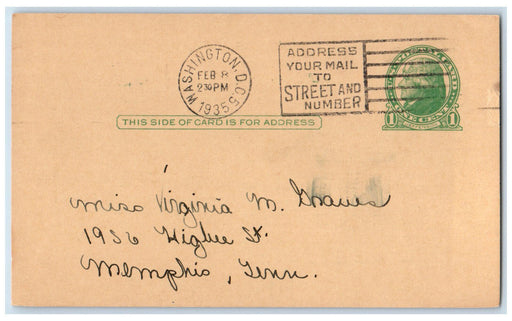 WASHINGTON, D.C. 5
FEB 8
230 PM
1935
ADDRESS
YOUR MAIL
TO
STREET AND
NUMBER
1 1
THIS SIDE OF CARD IS FOR ADDRESS
Miss Virginia M. Graves
1936 Higbee St.
Memphis, Tenn.